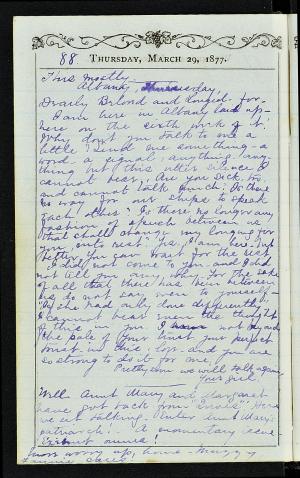 88 THURSDAY, MARCH 29, 1877.
This mostly
Albany, Thursday,
Dearly Beloved and longed for,
I am here in Albany laid up—
here on the sixth week of it.
Why don't you talk to me a
little? Send me something—a
word a signal, anything, any-
thing but this utter silence I
cannot bear. Are you sick too
and cannot talk much? Is there
no way for our ships to speak
each other? Is there no longer any
fashion of speech between us
that shall change my longing for
you into rest? yes, I am here—up
better you can wait for the rest
I did not come to you and I did
not tell you over why—for the sake
of all that there has been between
us do not say even to yourself
"if she had only done differently"
I cannot bear even the thought
of this in you I know not beyond
the pale of your trust your perfect
trust in this, too—and you are
so strong to do it for me.
Pretty soon we will talk again.
Your Girl.
Well Aunt Mary and Margaret
have got back from "Enos's" Here
we sit talking. Enter Aunt Mary's
patriarch! A momentary issue
omnes!
up, home—